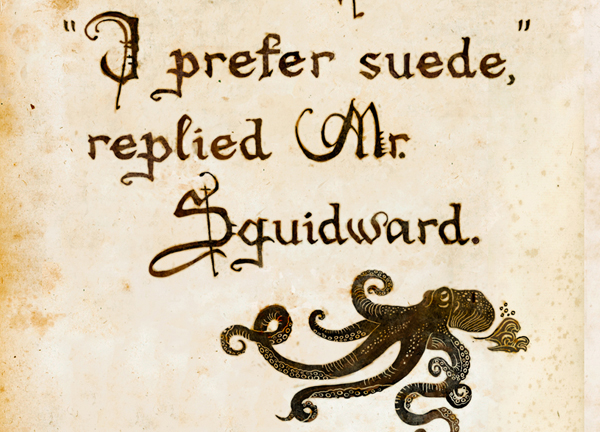 "I prefer suede,"
replied Mr.
Squidward.